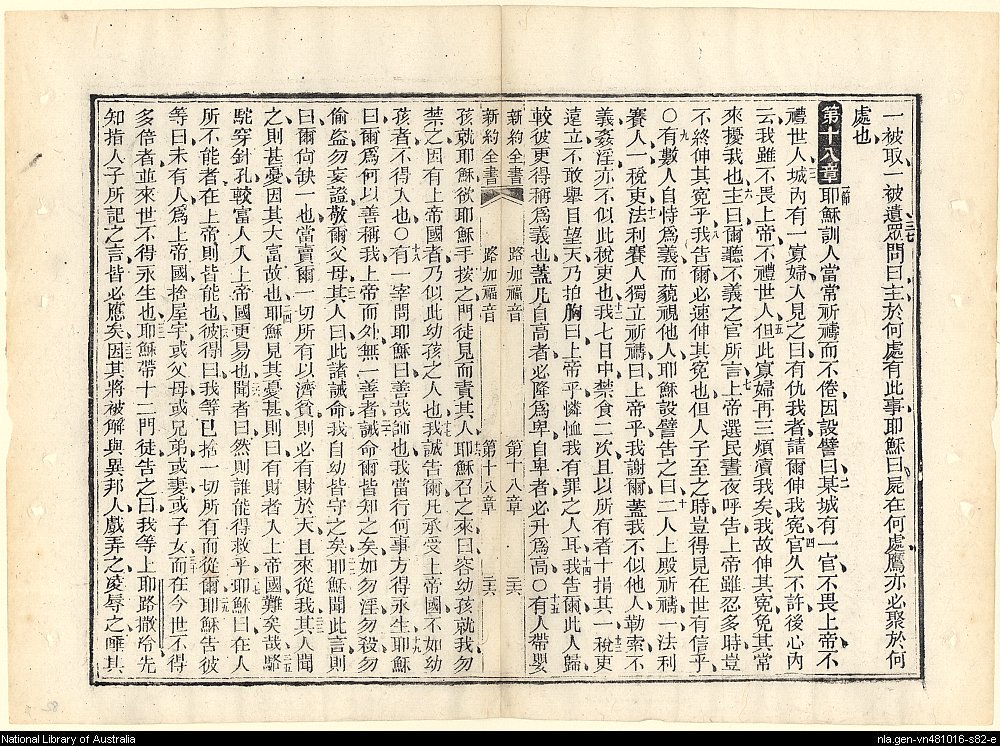 一被取一被遺三七眾問曰主於何處有此事耶穌曰屍在何處鷹亦必聚於何
處也
第十八章一節耶穌訓人當常祈禱而不倦因設譬曰二某城有一官不畏上帝不
禮世人三城內有一寡婦人見之曰有仇我者請爾伸我寃四官久不許後心內
云我雖不畏上帝不禮世人五但此寡婦再三煩瀆我矣我故伸其寃免其常
來擾我也六主曰爾聽不義之官所言七上帝選民晝夜呼告上帝雖忍多時豈
不終伸其寃乎八我告爾必速伸其寃也但人子至之時豈得見在世有信乎
○九有數人自恃爲義而藐視他人耶穌設譬告之曰十二人上殿祈禱一法利
賽人一稅吏十一法利賽人獨立祈禱曰上帝乎我謝爾蓋我不似他人勒索不
義姦淫亦不似此稅吏也十二我七日中禁食二次且以所有者十捐其一十三稅吏
遠立不敢舉目望天乃拍胸曰上帝乎憐恤我有罪之人耳十四我告爾此人歸
較彼更得稱爲義也蓋凡自高者必降爲卑自卑者必升爲高○十五有人帶嬰
新約全書 路加福音 第十八章 三六
新約全書 路加福音 第十八章 三六
孩就耶穌欲耶穌手按之門徒見而責其人十六耶穌召之來曰容幼孩就我勿
禁之因有上帝國者乃似此幼孩之人也十七我誠告爾凡承受上帝國不如幼
孩者不得入也○十八有一宰問耶穌曰善哉師也我當行何事方得永生十九耶穌
曰爾爲何以善稱我上帝而外無一善者二十誡命爾皆知之矣如勿淫勿殺勿
偷盜勿妄證敬爾父母二一其人曰此諸誡命我自幼皆守之矣二二耶穌聞此言則
曰爾尙缺一也當賣爾一切所有以濟貧則必有財於天且來從我二三其人聞
之則甚憂因其大富故也二四耶穌見其憂甚則曰有財者入上帝國難矣哉二五駱
駝穿針孔較富人入上帝國更易也二六聞者曰然則誰能得救乎二七耶穌曰在人
所不能者在上帝則皆能也二八彼得曰我等已捨一切所有而從爾二九耶穌告彼
等曰未有人爲上帝國捨屋宇或父母或兄弟或妻或子女三十而在今世不得
多倍者並來世不得永生也三一耶穌帶十二門徒告之曰我等上耶路撒冷先
知指人子所記之言皆必應矣三二因其將被解與異邦人戲弄之凌辱之唾其
National Library of Australia
nla.gen-vn481016-s82-e